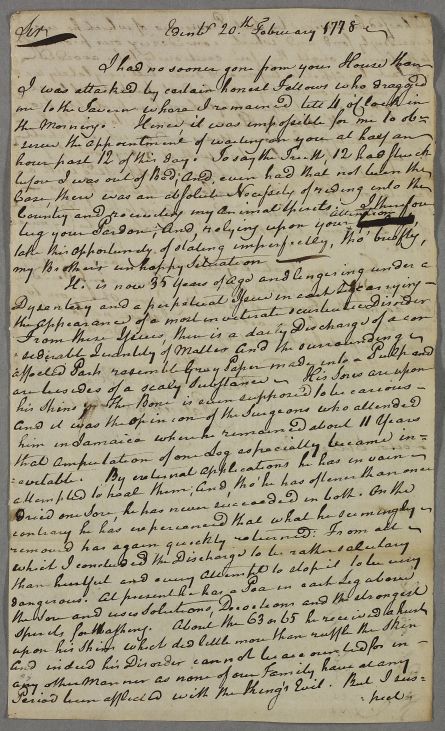 Sir Edinr 20th February 1778
I had no sooner gone from your House than
I was attacked by certain honest Fellows who dragged
me to the Tavern where I remained till 4 o'Clock in
the Morning. Hence it was impossible for me to ob-
serve the appointment of waiting on you at half an
hour past 12 of this day. To say the Truth, 12 had struck
before I was out of Bed, And, even had that not been the
Case, there was an absolute Necessity of riding into the
Country and recruiting my Animal Spirits. I therefore
beg your Pardon; And, relying upon your attention
take this Opportunity of stating imperfectly, tho' briefly,
my Brother's unhappy Situation
He is now 35 Years of Age and lingering under a
Dysentery and a perpetual in each Leg carrying
the Appearance of a most inveterate scorbutic Disorder
From these there is a daily Discharge of a con-
siderable Quantity of Matter And the surrounding
affected Parts resemble Gray Paper made into a Pulp and
are besides of a scaly Substance His Sores are upon
his Shins The Bone is even supposed to be carious
And it was the Opinion of the Surgeons who attended
him in Jamaica where he remained about 11 Years
that Amputation of one Leg especially became in-
=evitable. By external Applications he has in vain
attempted to heal them; And, tho' he has oftener than once
dried one Sore, he has never succeeded in both. On the
contrary he has experienced that what he seemingly
removed has again quickly returned: From all
which I concluded the Discharge to be rather salutary
than hurtful and every Attempt to stop it to be very
dangerous. At present he has a Pea in each Leg above
the Sore and uses Solutions, Decoctions and the strongest
Spirits for Washing. About the 63 or 65 he received a hurt
upon his Shins which did little more than ruffle the Skin
And indeed his Disorder cannot be accounted for in
any other Manner as none of our Family have at any
Period been affected with the King's Evil. But I sus-
=pect